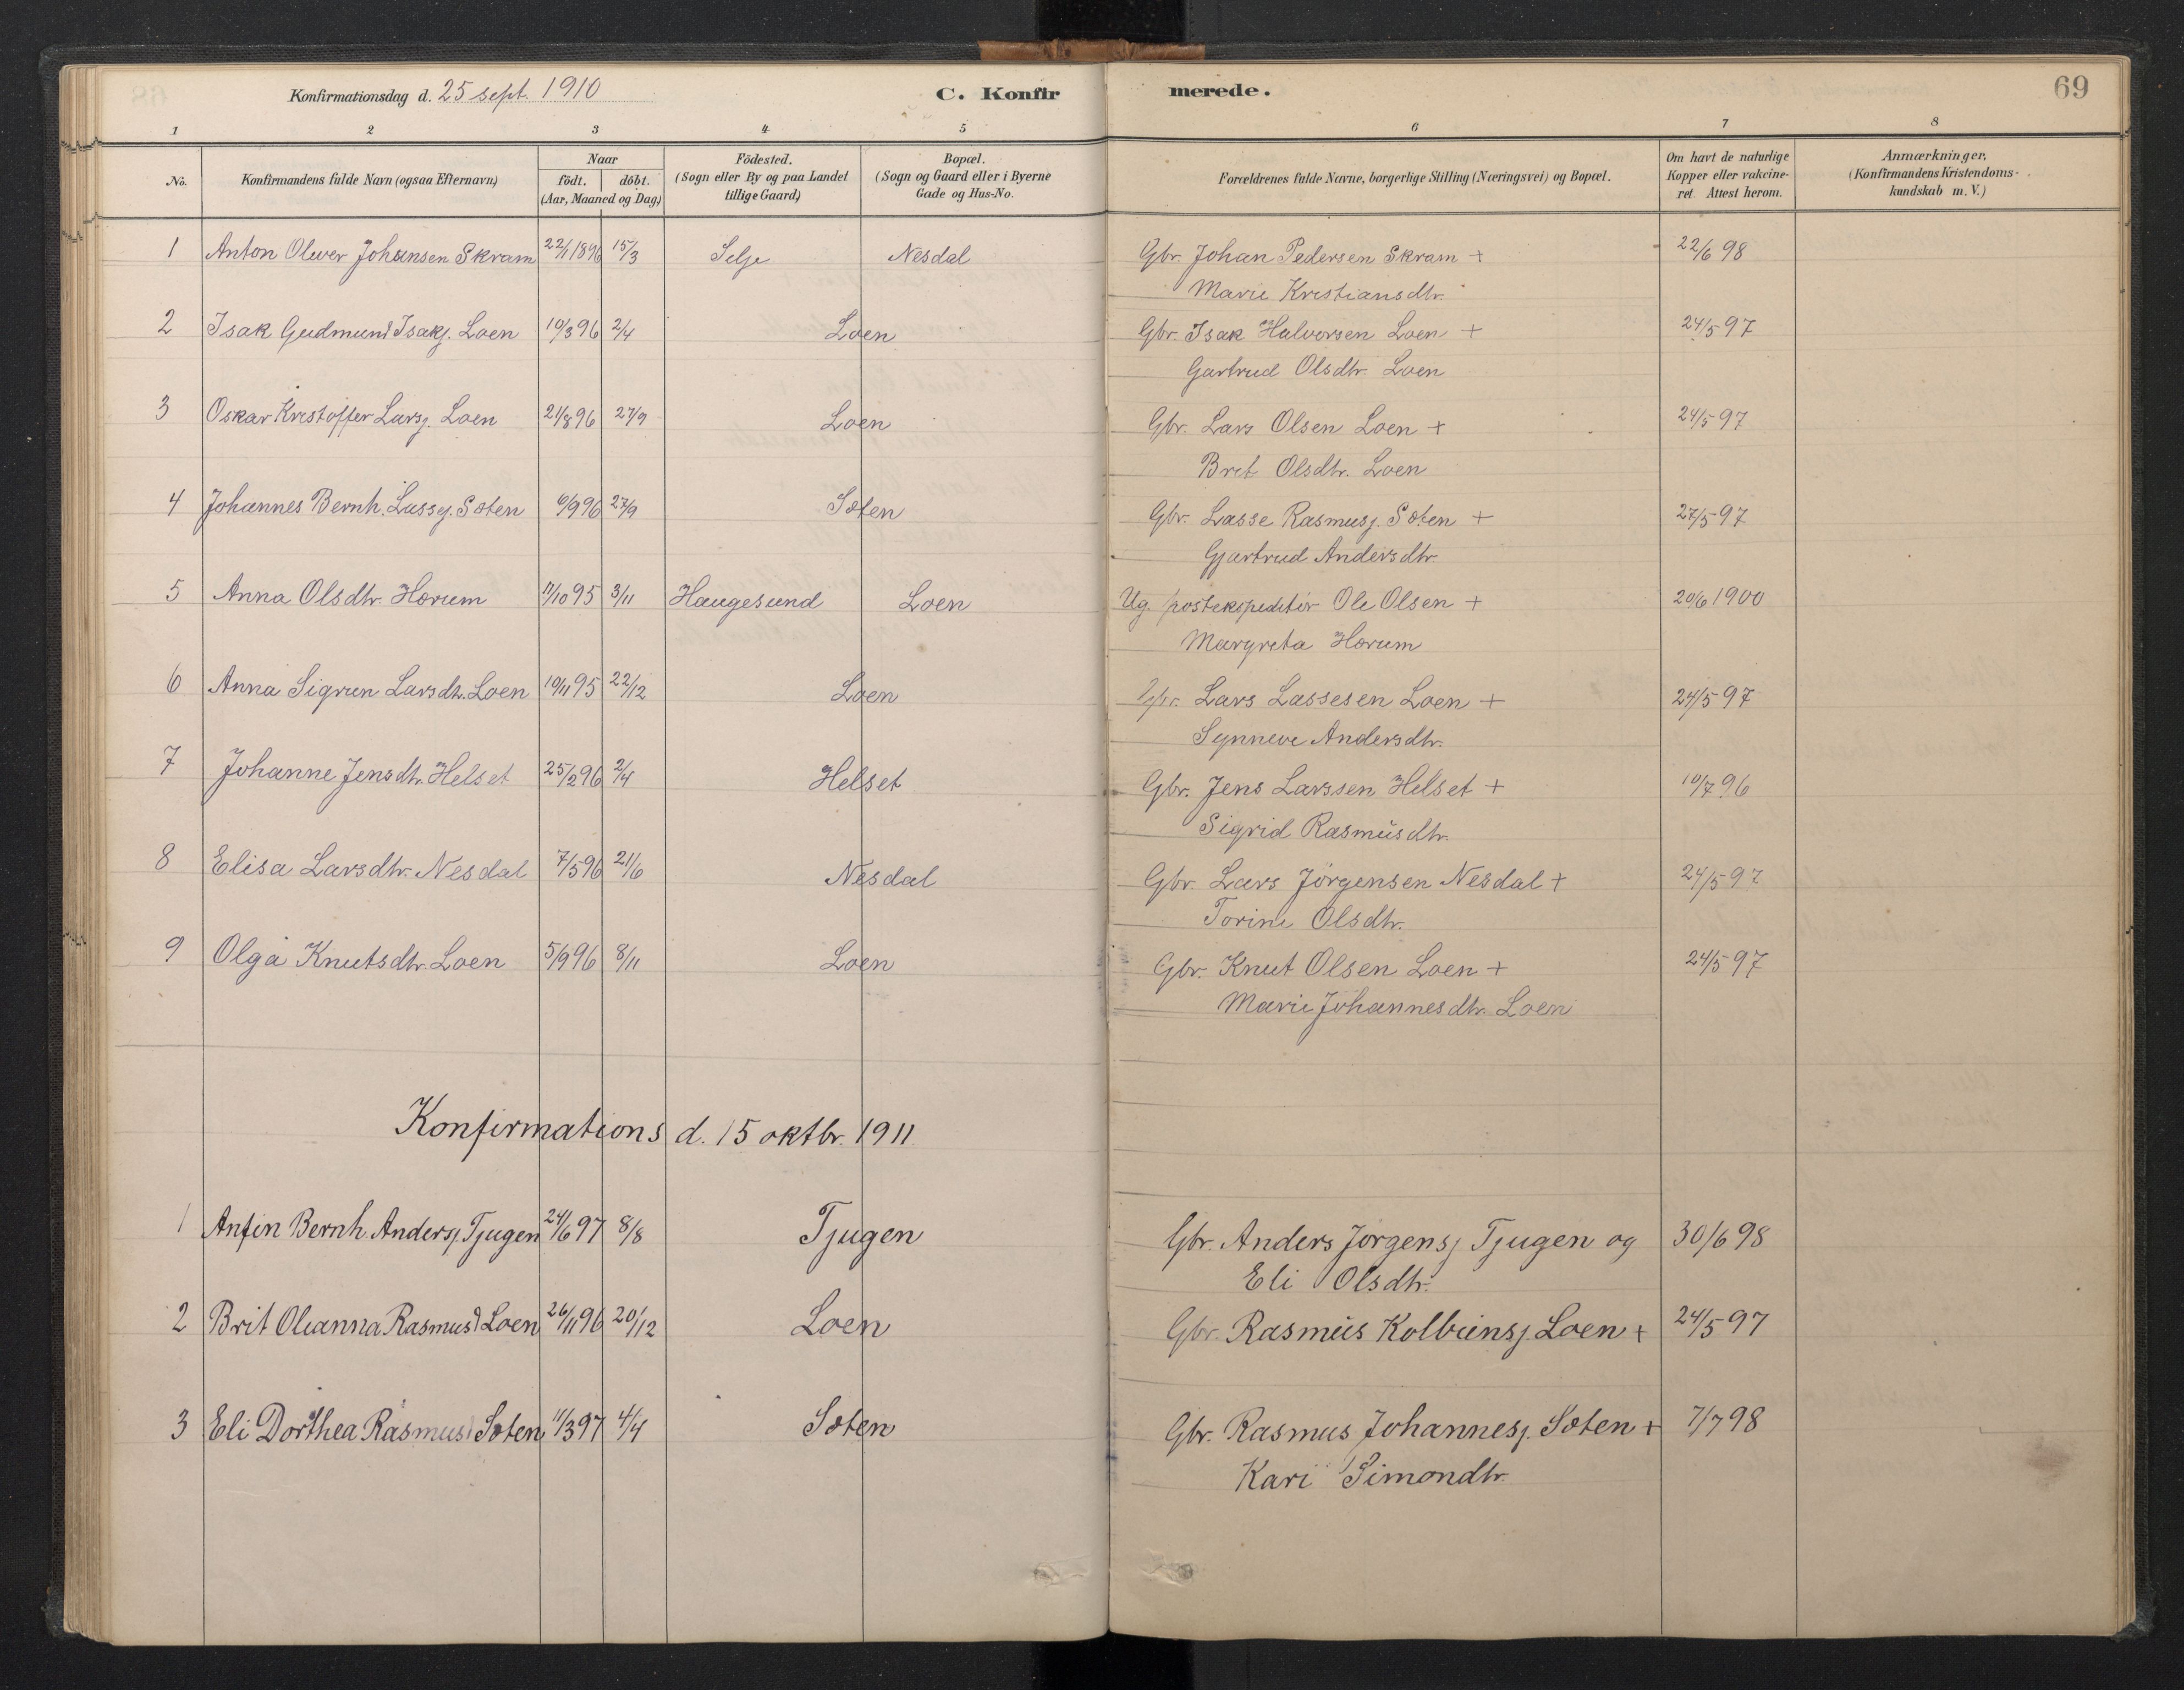 Konfirmationsdag d. 25 sept. 1910 C. Konfirmerede. 69
1 2 3 4 5 6 7 8
No. Konfirmandens fulde Navn (ogsaa Efternavn) Naar födt. döbt. (Aar, Maaned og Dag) Födested. (Sogn eller By og paa Landet tillige Gaard) Bopæl. (Sogn og Gaard eller i Byerne Gade og Hus-No. Forældrenes fulde Navne, borgerlige Stilling (Næringsvei) og Bopæl. Om havt de naturlige Kopper eller vakcineret. Attest herom. Anmærkninger, (Konfirmandens Kristendomskundskab m. V.)
1 Anton Oliver Johansen Skram 22/1 1896 15/3 Selje Nesdal Gbr. Johan Pedersen Skram + 22/6 98
Marie Kristiansdtr.
2 Isak Gudmund Isaks. Loen 10/3 96 2/4 Loen Gbr. Isak Halvorsen Loen + 24/5 97
Gartrud Olsdtr. Loen
3 Oskar Kristoffer Larss. Loen 21/8 96 27/9 Loen Gbr. Lars Olsen Loen + 24/5 97
Brit Olsdtr. Loen
4 Johannes Bernh. Lasses. Sæten 6/9 96 27/9 Sæten Gbr. Lasse Rasmuss. Sæten + 27/5 97
Gjartrud Andersdtr.
5 Anna Olsdtr. Hærum 11/10 95 3/11 Haugesund Loen Ug. postekspeditör Ole Olsen + 20/6 1900
Margreta Hærum
6 Anna Sigrun Larsdtr. Loen 10/11 95 22/12 Loen Gbr. Lars Lassesen Loen + 24/5 97
Synneve Andersdtr.
7 Johanne Jensdtr. Helset 25/2 96 2/4 Helset Gbr. Jens Larssen Helset + 10/7 96
Sigrid Rasmusdtr.
8 Elisa Larsdtr. Nesdal 7/5 96 21/6 Nesdal Gbr. Lars Jörgensen Nesdal + 24/5 97
Torine Olsdtr.
9 Olga Knutsdtr. Loen 5/9 96 8/11 Loen Gbr. Knut Olsen Loen + 24/5 97
Marie Johannesdtr. Loen
Konfirmations d. 15 oktbr. 1911
1 Anfin Bernh. Anderss. Tjugen 24/6 97 8/8 Tjugen Gbr. Anders Jørgenss. Tjugen og 30/6 98
Eli Olsdtr.
2 Brit Oleanna Rasmusd Loen 26/11 96 20/12 Loen Gbr. Rasmus Kolbeinss. Loen + 24/5 97
3 Eli Dorthea Rasmusd Sæten 11/3 97 4/4 Sæten Gbr. Rasmus Johanness. Sæten + 7/7 98
Kari Simondtr.